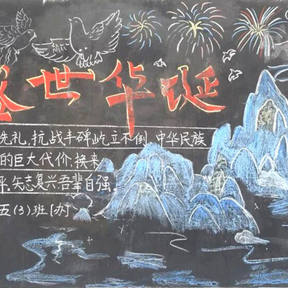 盛世华诞
洗礼,抗战丰碑屹立不倒,中华民族
的巨大代价,换来
矢志复兴吾辈自强
五(3)班[办]